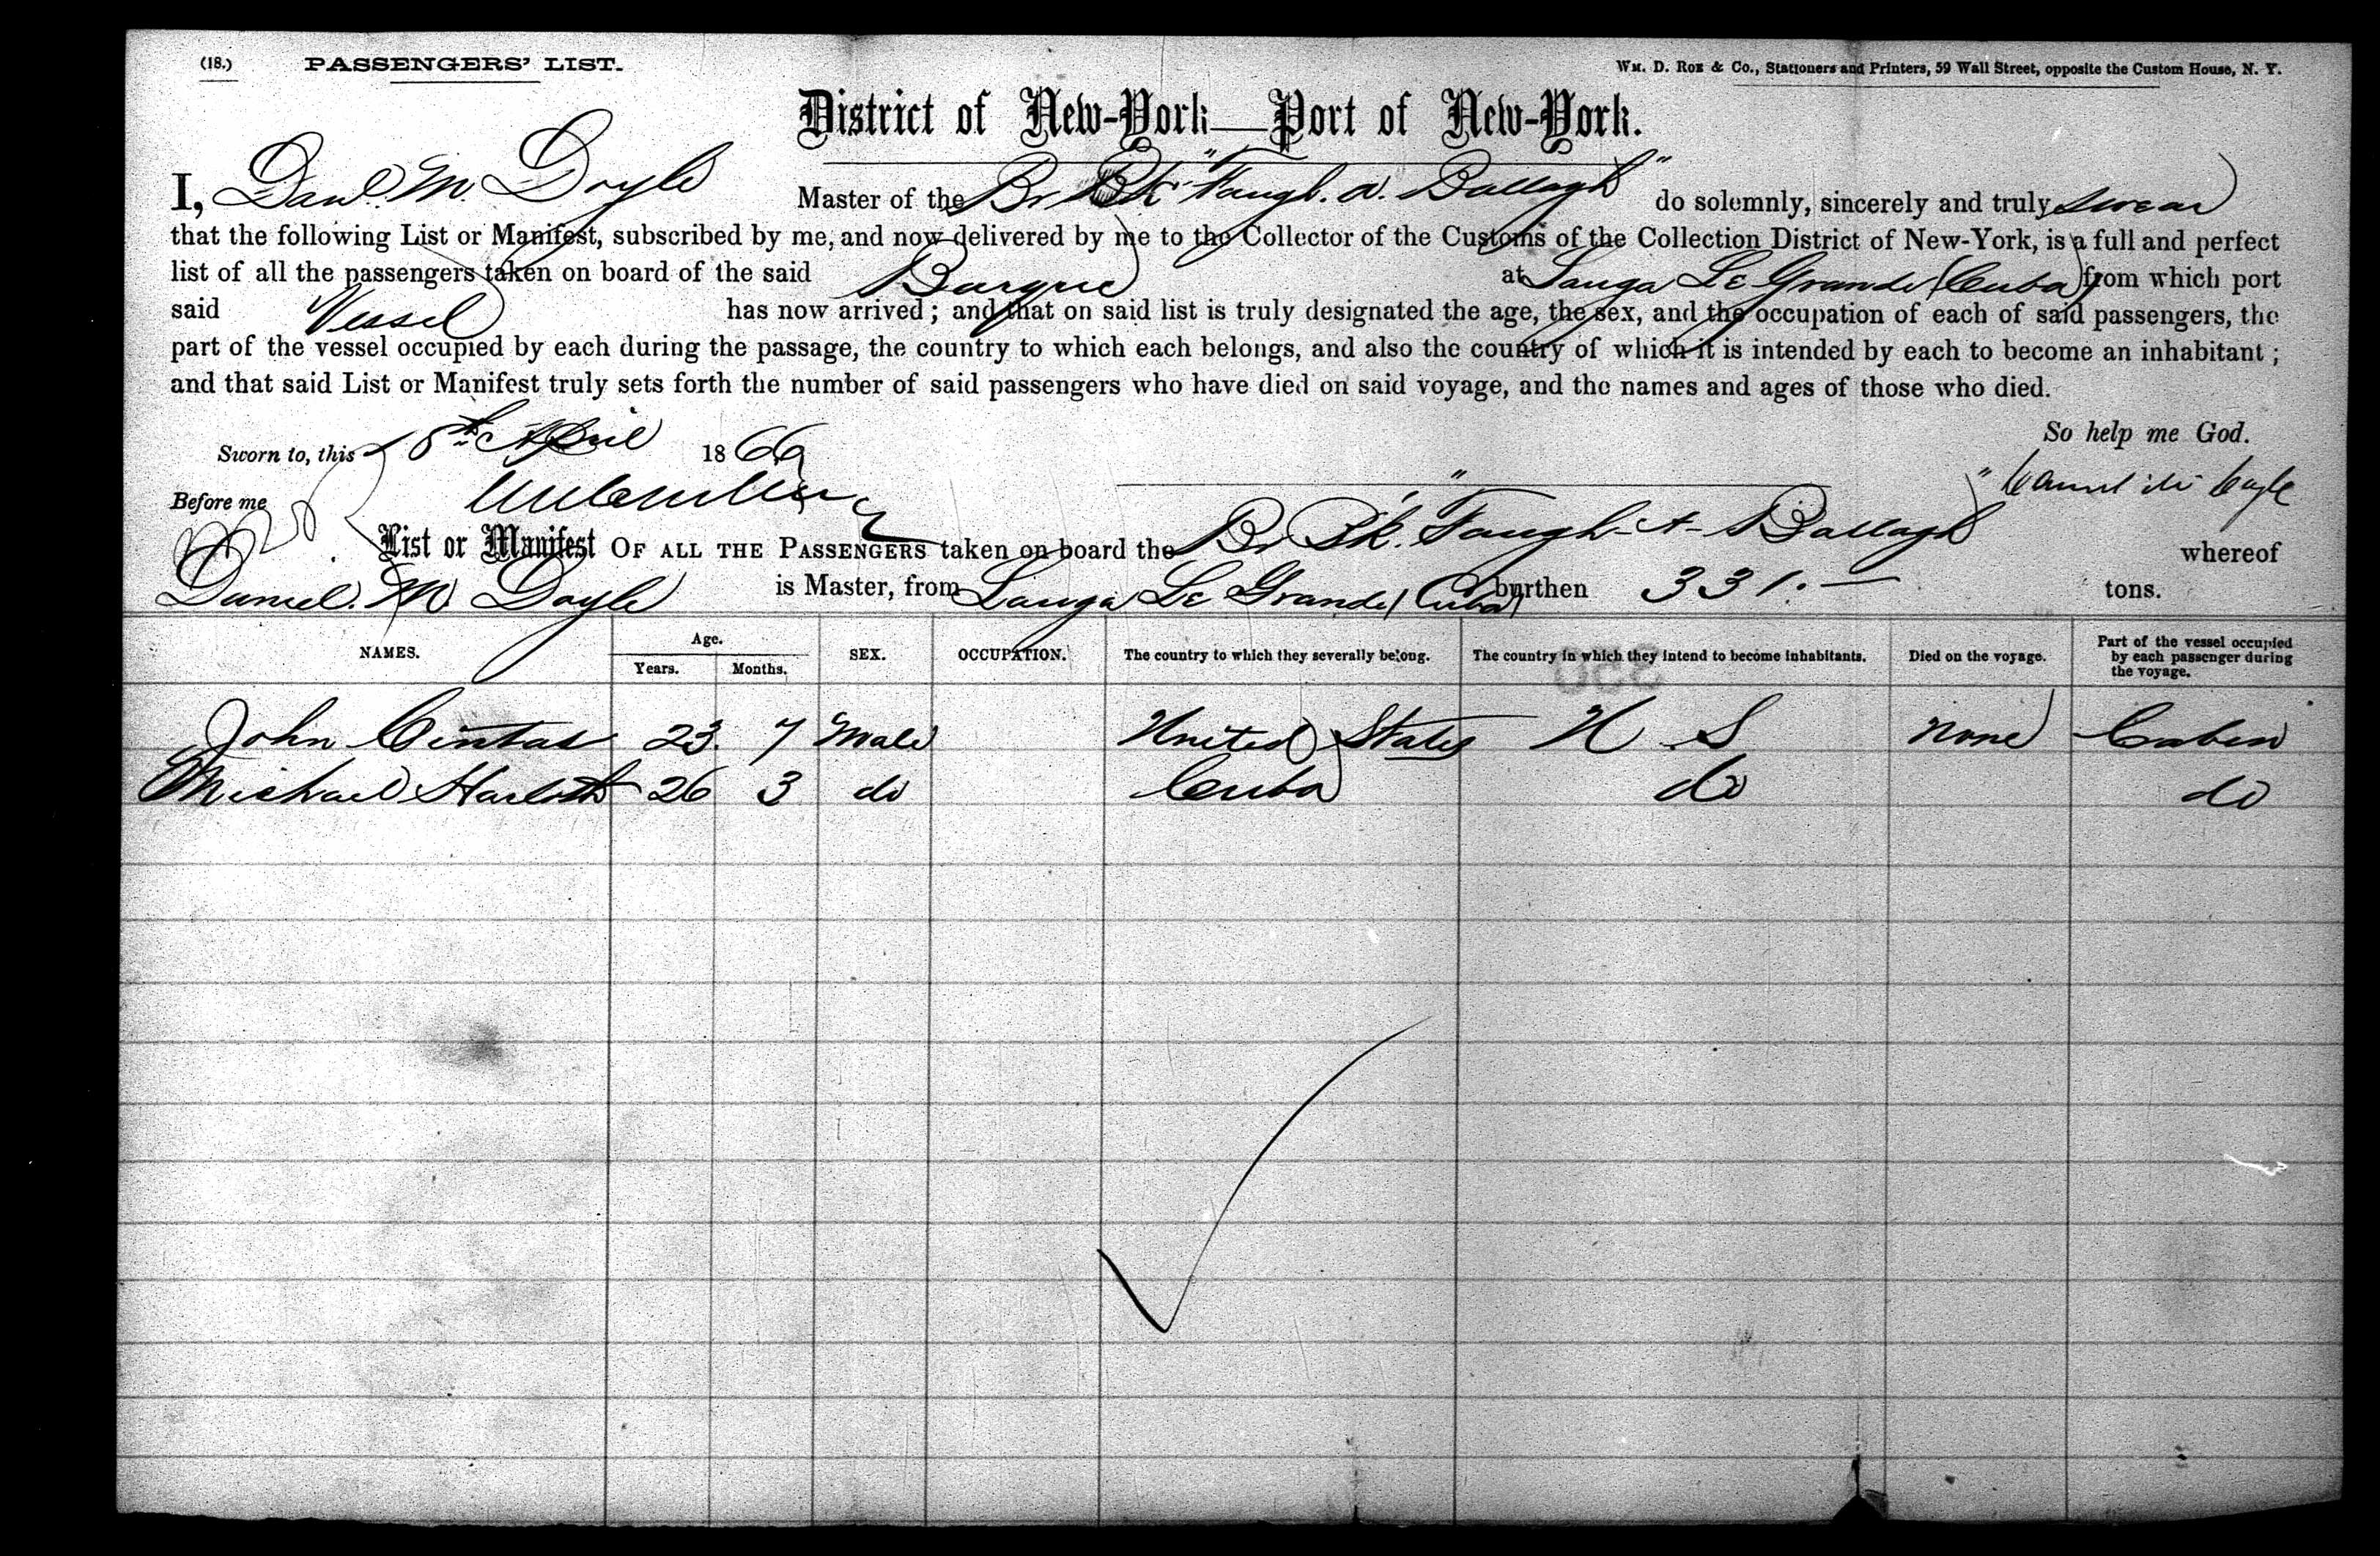 (18.) PASSENGERS' LIST. WM. D. ROE & CO., Stationers and Printers, 59 Wall Street, opposite the Custom House, N. Y.
District of New-York—Port of New-York.
I, Danl. M. Doyle Master of the Br Bk "Faugh. a. Ballagh" do solemnly, sincerely and truly swear
that the following List or Manifest, subscribed by me, and now delivered by me to the Collector of the Customs of the Collection District of New-York, is a full and perfect
list of all the passengers taken on board of the said Barque at Sauga Le Grande (Cuba) from which port
said Vessel has now arrived; and that on said list is truly designated the age, the sex, and the occupation of each of said passengers, the
part of the vessel occupied by each during the passage, the country to which each belongs, and also the country of which it is intended by each to become an inhabitant;
and that said List or Manifest truly sets forth the number of said passengers who have died on said voyage, and the names and ages of those who died.
So help me God.
Sworn to, this April 1866
Before me
List or Manifest OF ALL THE PASSENGERS taken on board the Br Bk. "Faugh-A-Ballagh" whereof
Daniel. M. Doyle is Master, from Sauga Le Grande (Cuba) burthen 331.— tons.
NAMES. Age. Years. Months. SEX. OCCUPATION. The country to which they severally belong. The country in which they intend to become inhabitants. Died on the voyage. Part of the vessel occupied by each passenger during the voyage.
John Cintas 23 7 Male United States U S None Cabin
Michael 26 3 do Cuba do do